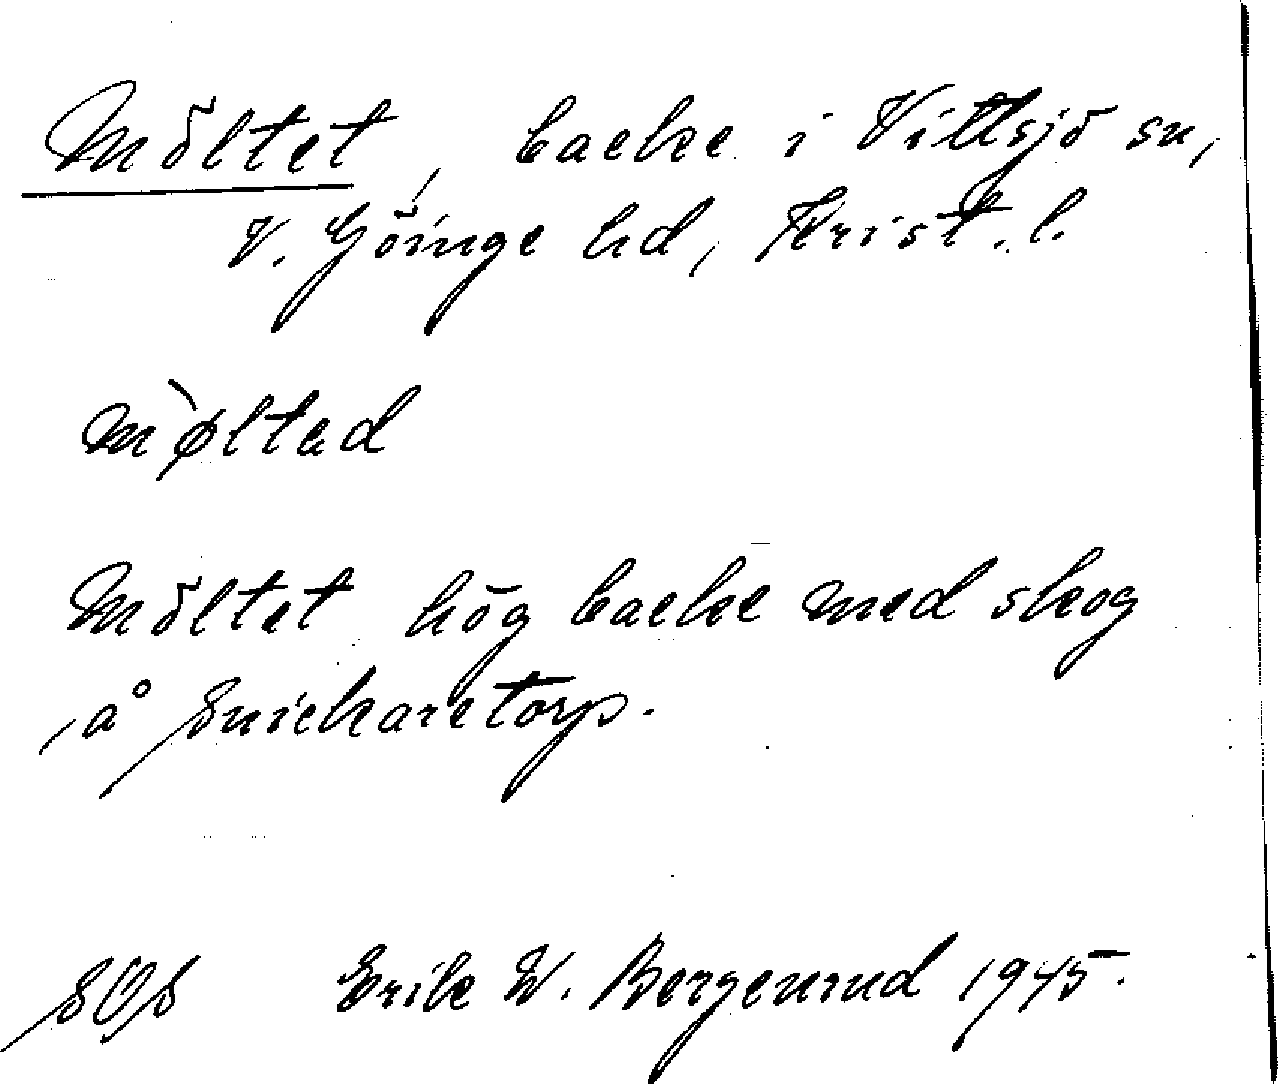 Möltet, backe i Vittsjö sn,
V. Göinge hd, Krist. l.
mø̀ltad
Möltet hög backe med skog
å Snickaretorp.
SOS Erik W. Bergenrud 1945.